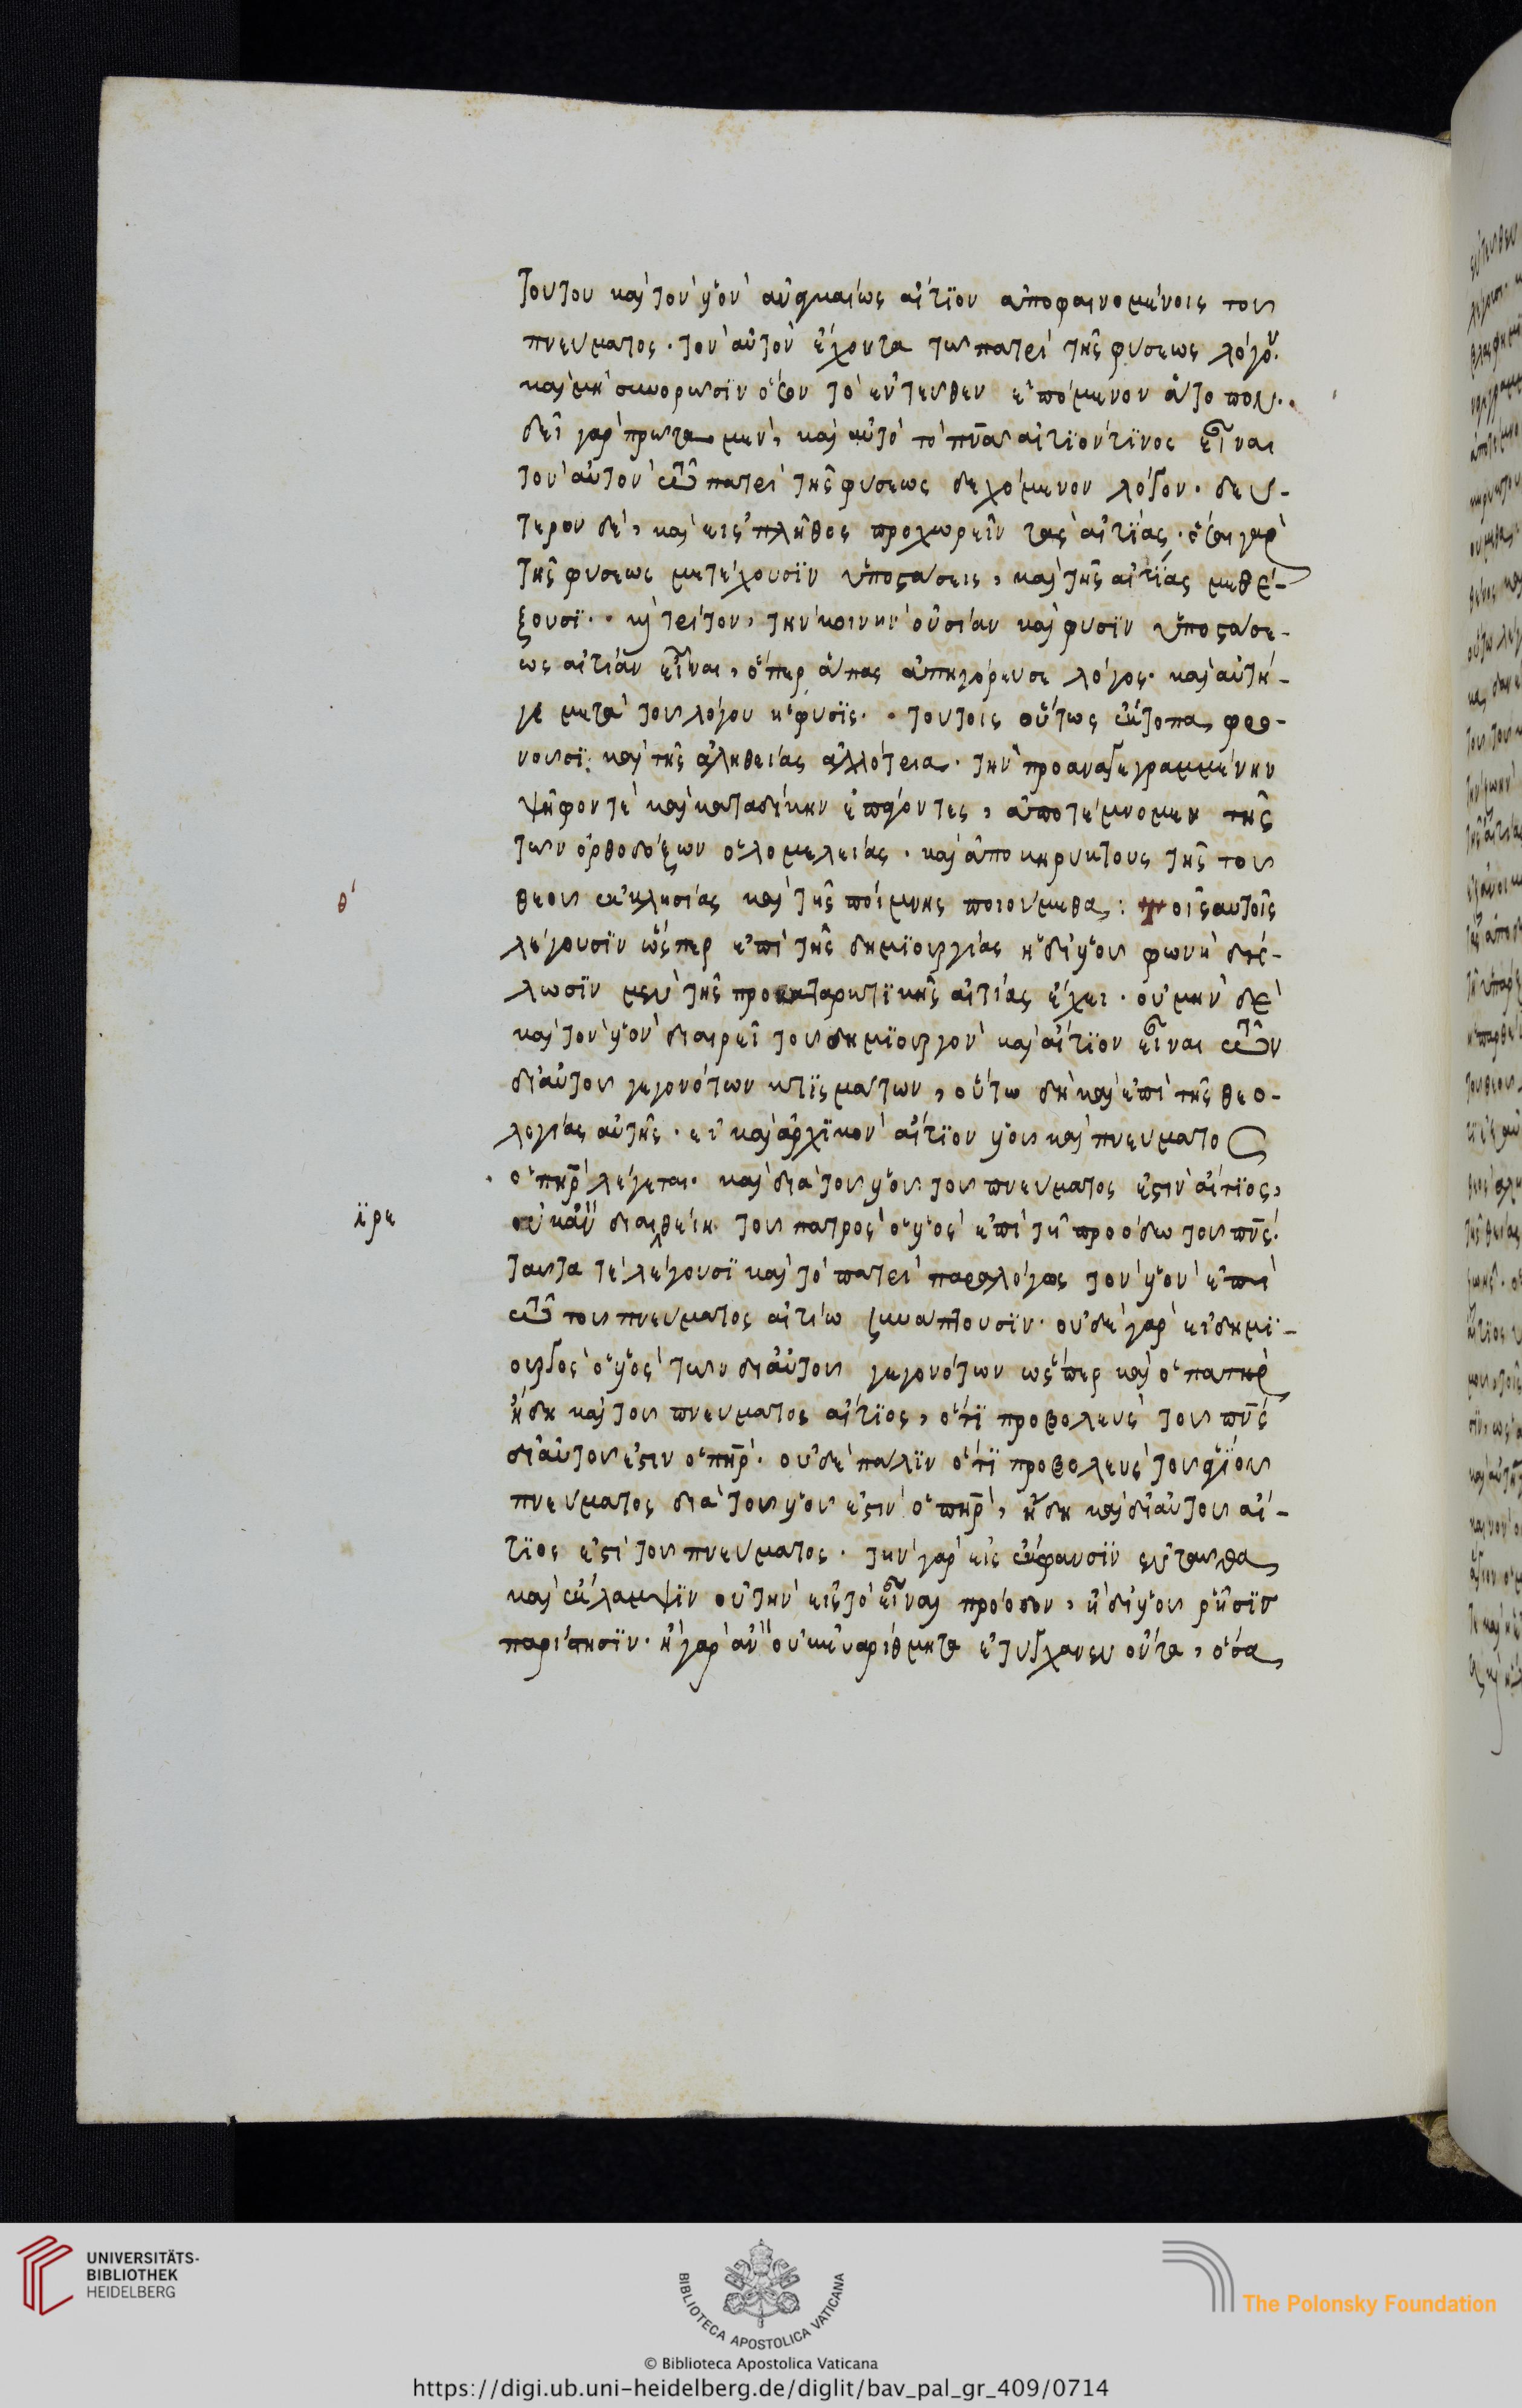 τούτου καὶ τὸν υἱὸν ἀναγκαίως αἴτιον ἀποφαινομένοις τοῦ
πνεύματος. τὸν αὐτὸν ἔχοντα τῶ πατρὶ τῆς φύσεως λόγον.
καὶ μὴ συνορῶσιν ὅσον τὸ ἐντεῦθεν ἑπόμενον ἄτοπον.
δεῖ γὰρ πρῶτα μὲν, καὶ αὐτὸ τὸ πνα αἴτιον τινὸς εἶναι
τὸν αὐτὸν τῶ πατρὶ τῆς φύσεως δεχόμενον λόγον. δεύ-
τερον δὲ, καὶ εἰς πλῆθος προχωρεῖν τὰς αἰτίας. ὅσαι γὰρ
τῆς φύσεως μετέχουσιν ὑποστάσεις, καὶ τῆς αἰτίας μεθέ-
ξουσι. κ τρίτον, τὴν κοινὴν οὐσίαν καὶ φύσιν ὑποστάσε-
ως αἰτίαν εἶναι, ὅπερ ἅπας ἀπηγόρευσε λόγος. καὶ αὐτή
γε μετὰ τοῦ λόγου ἡ φύσις. τούτοις οὕτως ἔκτοπα φρο-
νοῦσι. καὶ τῆς ἀληθείας ἀλλότρια. τὴν προαναγεγραμμένην
ψῆφόν τε καὶ καταδίκην ἐπάγοντες, ἀποτέμνομεν τῆς
τῶν ὀρθοδόξων ὁλομελείας. καὶ ἀποκηρύκτους τῆς τοῦ
θ΄
θεοῦ ἐκκλησίας καὶ τῆς ποίμνης ποιούμεθα: τοῖς αὐτοῖς
λέγουσιν ὥσπερ ἐπὶ τῆς δημιουργίας ἡ δι' υἱοῦ φωνὴ δή-
λωσιν μὲν τῆς προκαταρκτικῆς αἰτίας ἔχει. οὐ μὴν δὲ
καὶ τὸν υἱὸν διαιρεῖ τοῦ δημιουργὸν καὶ αἴτιον εἶναι τῶν
δι' αὐτοῦ γεγονότων κτισμάτων, οὕτω δὴ καὶ ἐπὶ τῆς θεο-
λογίας αὐτῆς. εἰ καὶ ἀρχικὸν αἴτιον υἱοῦ καὶ πνεύματος
ὁ πηρ λέγεται. καὶ διὰ τοῦ υἱοῦ τοῦ πνεύματος ἐστὶν αἴτιος,
ιρε
οὐκ ἂν διαιρεθείη τοῦ πατρὸς ὁ υἱὸς ἐπὶ τῆ προόδω τοῦ πνς.
ταῦτά τε λέγουσι καὶ τὸ πατρὶ παραλόγως τὸν υἱὸν ἐπὶ
τῶ τοῦ πνεύματος αἰτίω συνάπτουσιν. οὐδὲ γὰρ εἰ δημι-
ουργὸς ὁ υἱὸς τῶν δι' αὐτοῦ γεγονότων ὥσπερ καὶ ὁ πατὴρ
ἤδη καὶ τοῦ πνεύματος αἴτιος, ὅτι προβολεὺς τοῦ πνς
δι' αὐτοῦ ἐστιν ὁ πηρ. οὐδὲ πάλιν ὅτι προβολεὺς τοῦ ἁγίου
πνεύματος διὰ τοῦ υἱοῦ ἐστὶν ὁ πηρ, ἤδη καὶ δι' αὐτοῦ αἴ-
τιος ἐστὶ τοῦ πνεύματος. τὴν γὰρ εἰς ἔκφανσιν ἐνταῦθα
καὶ ἔκλαμψιν οὐ τὴν εἰς τὸ εἶναι πρόοδον, ἡ δι' υἱοῦ ῥῆσις
παρίστησιν. ἢ γὰρ ἂν οὐκ εὐαρίθμητα ἐτύγχανεν ὄντα, ὅσα
UNIVERSITÄTS-
BIBLIOTHEK
HEIDELBERG
BIBLIOTECA APOSTOLICA VATICANA
The Polonsky Foundation
© Biblioteca Apostolica Vaticana
https://digi.ub.uni-heidelberg.de/diglit/bav_pal_gr_409/0714